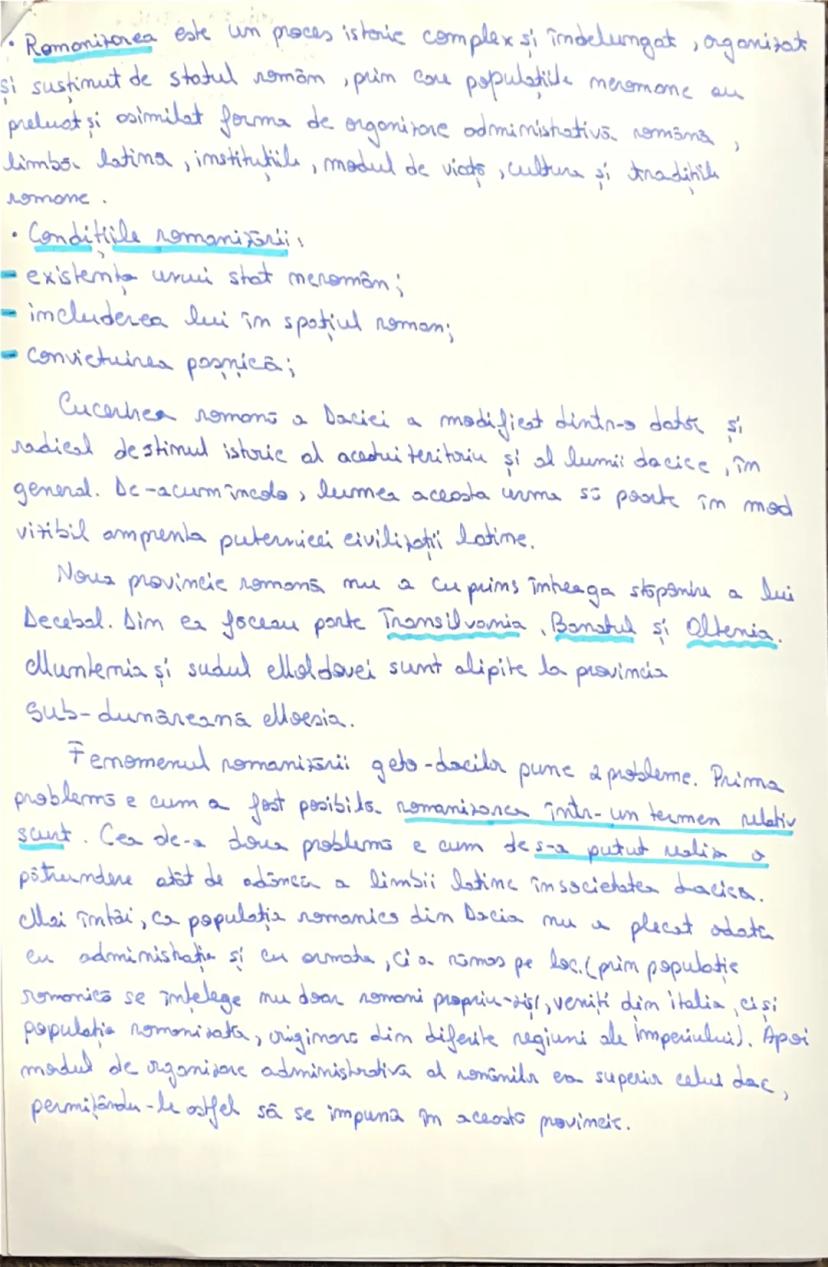 • Romanizarea este un proces istoric complex și îndelungat, organizat
și susținut de statul român, prin care populațiile neromane au
preluat și asimilat forma de organizare administrativă română,
limba latina, instituțiile, modul de viață, cultura și tradițiile
romane.
• Condițiile romanizării:
- existența unui stat neromân;
- includerea lui în spațiul roman;
- convictuirea pașnică;
Cucerirea romană a Daciei a modificat dintr-o dată și
radical destinul istoric al acestui teritoriu și al lumii dacice, în
general. De-acum încolo, lumea aceasta urma să poarte în mod
vizibil amprenta puternicei civilizații latine.
Noua provincie romană nu a cuprins întreaga stăpânire a lui
Decebal. Din ea făceau parte Transilvania, Banatul și Oltenia.
Muntenia și sudul Moldovei sunt alipite la provincia
sub-dunăreană Moesia.
Fenomenul romanizării geto-dacilor pune 2 probleme. Prima
problemă e cum a fost posibila romanizarea într-un termen relativ
scurt. Cea de-a doua problemă e cum de s-a putut realiza o
pătrundere atât de adâncă a limbii latine în societatea dacica.
Mai întâi, ca populația romanica din Dacia nu a plecat odata
cu administrația și cu armata, ci a rămas pe loc.(prin populație
romanică se înțelege nu doar romani propriu-ziși, veniți din italia, ci și
populația romanizata, originara din diferite regiuni ale Imperiului). Apoi
modul de organizare administrativa al românilor era superior celui dac,
permițându-le astfel să se impuna în aceastā provincie.